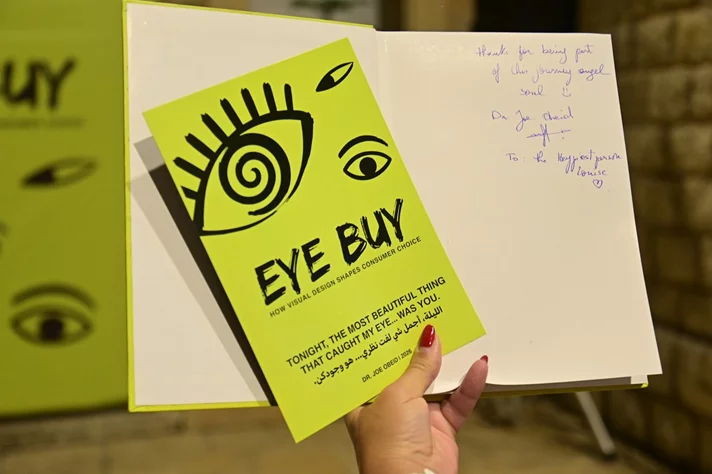 BUY
thanks for being part
of this journey angel
soul
Dr Joe Obeid
To: the happiest person
Louise
EYE BUY
HOW VISUAL DESIGN SHAPES CONSUMER CHOICE
TONIGHT, THE MOST BEAUTIFUL THING
THAT CAUGHT MY EYE... WAS YOU.
الليلة، أجمل شي لفت نظري... هو وجودكن.
DR. JOE OBEID | 2026